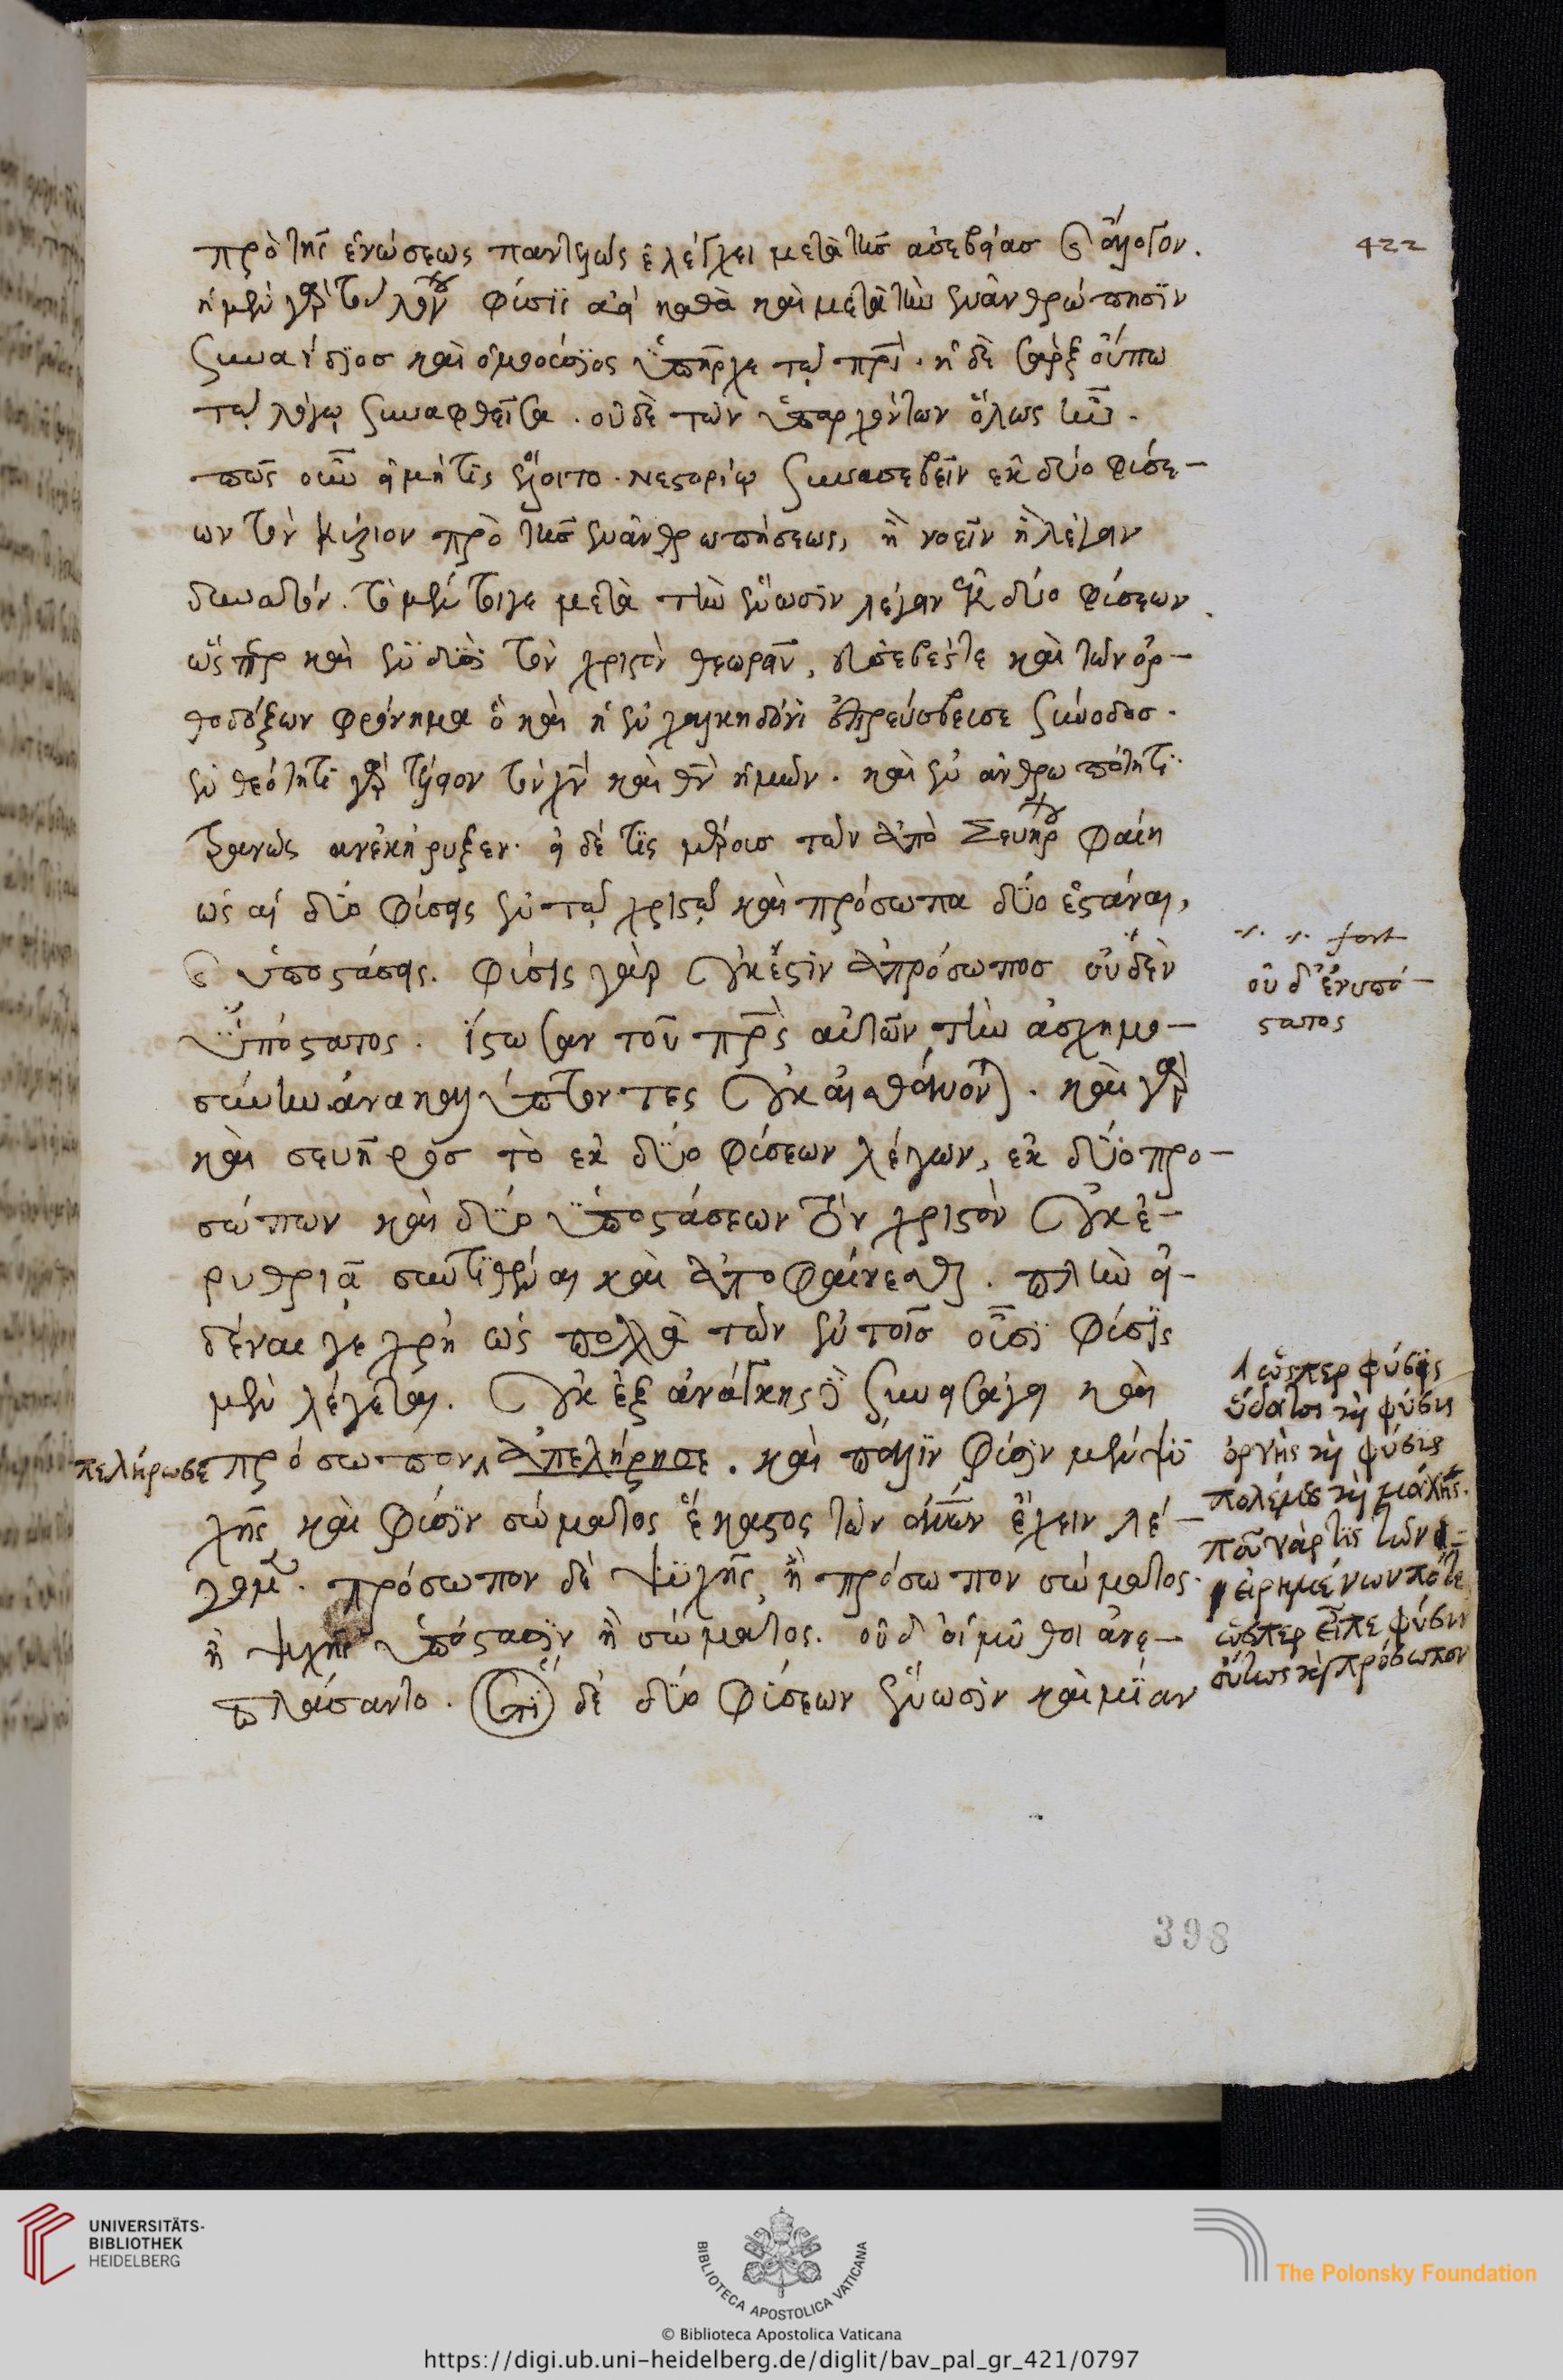 422
πρὸ τῆς ἑνώσεως παντελῶς ἐλέγχει μετὰ τῆς ἀσεβείασ καὶ ἄλογον.
ἡ μὲν γὰρ τοῦ λόγου φύσϊς ἀεὶ καθὰ καὶ μετὰ τὴν ἐνανθρώπησϊν
συναΐδϊοσ καὶ ὁμοούσϊος ὑπῆρχε τῷ πρὶ. ἡ δὲ σὰρξ οὔπω
τῷ λόγῳ συναφθεῖσα. οὐδὲ τῶν ὑπαρχόντων ὅλως ἦν.
πῶς οὖν εἰ μή τις ἕλοιτο. νεστορίῳ συνασεβεῖν ἐκ δύο φύσε-
ων τὸν κύριον πρὸ τῆσ ἐνανθρωπήσεως, ἢ νοεῖν ἢ λέγειν
δυνατόν. τὸ μέν τοιγε μετὰ τὴν ἕνωσϊν λέγειν ἐκ δύο φύσεων
ὥσπερ καὶ ἐν δυσὶ τὸν χριστὸν θεωρεῖν, εὐσεβές τε καὶ τῶν ὀρ-
θοδόξων φρόνημα ὃ καὶ ἡ ἐν χαλκηδόνι ἐπρεύσβευσε σύνοδοσ.
ἐν θεότητϊ γὰρ τέλειον τὸν χν καὶ θν ἡμῶν. καὶ ἐν ἀνθρωπότητϊ
τρανῶς ἀνεκήρυξεν. εἰ δέ τϊς ἡμῖν τῶν ἀπὸ Σευήρου φαίη
ὡς αἱ δύο φύσεις ἐν τῷ χριστῷ καὶ πρόσωπα δύο ἐστάναι,
καὶ ὑποστάσεις. φύσϊς γὰρ οὐκ ἔστϊν ἀπρόσωποσ οὐδὲν
ὑπόστατος. ἴστωσαν τοῦ πρσ αὐτῶν τὴν ἀσχημο-
σύνην ἀνακαλύπτοντες οὐκ αἰσθάνονται. καὶ γὰρ
καὶ σευῆροσ τὸ ἐκ δύο φύσεων λέγων, ἐκ δύο προ-
σώπων καὶ δύο ὑποστάσεων τὸν χριστὸν οὐκ ἐ-
ρυθριᾷ συντϊθέναι καὶ ἀποφαίνεσθαι. πλὴν εἰ-
δέναι γε χρὴ ὡς πολλὰ τῶν ἐν τοῖσ οὖσϊ φύσϊς
μὲν λέγεται. οὐκ ἐξ ἀνάγκης δὲ συνεισάγει καὶ
πρόσωπον, ἀπελήρησε. καὶ πάλϊν φύσϊν μὲν ψϋ
χῆς καὶ φύσϊν σώματος ἕκαστος τῶν ἀνων ἔχειν λέ-
γομεν. πρόσωπον δὲ ψϋχῆς, ἢ πρόσωπον σώματος.
ἢ ψυχῆς ὑπόστασϊν ἢ σώματος. οὐδ οἱ μῦθοι ἀνε-
πλάσαντο. ἐπὶ δὲ δύο φύσεων ἕνωσϊν καὶ μϊάν
fort
οὐδ' ἐνυπό-
στατος
πελήρωσε
ὥσπερ φύσϊς
ὕδατος καὶ φύσις
ὀργῆς καὶ φύσϊς
πολέμου καὶ μάχης.
ποῦ γάρ τις τῶν
εἰρημένων πότε
ὥσπερ εἶπε φύσιν
οὕτως καὶ πρόσωπον
398
UNIVERSITÄTS-
BIBLIOTHEK
HEIDELBERG
BIBLIOTECA APOSTOLICA VATICANA
The Polonsky Foundation
© Biblioteca Apostolica Vaticana
https://digi.ub.uni-heidelberg.de/diglit/bav_pal_gr_421/0797